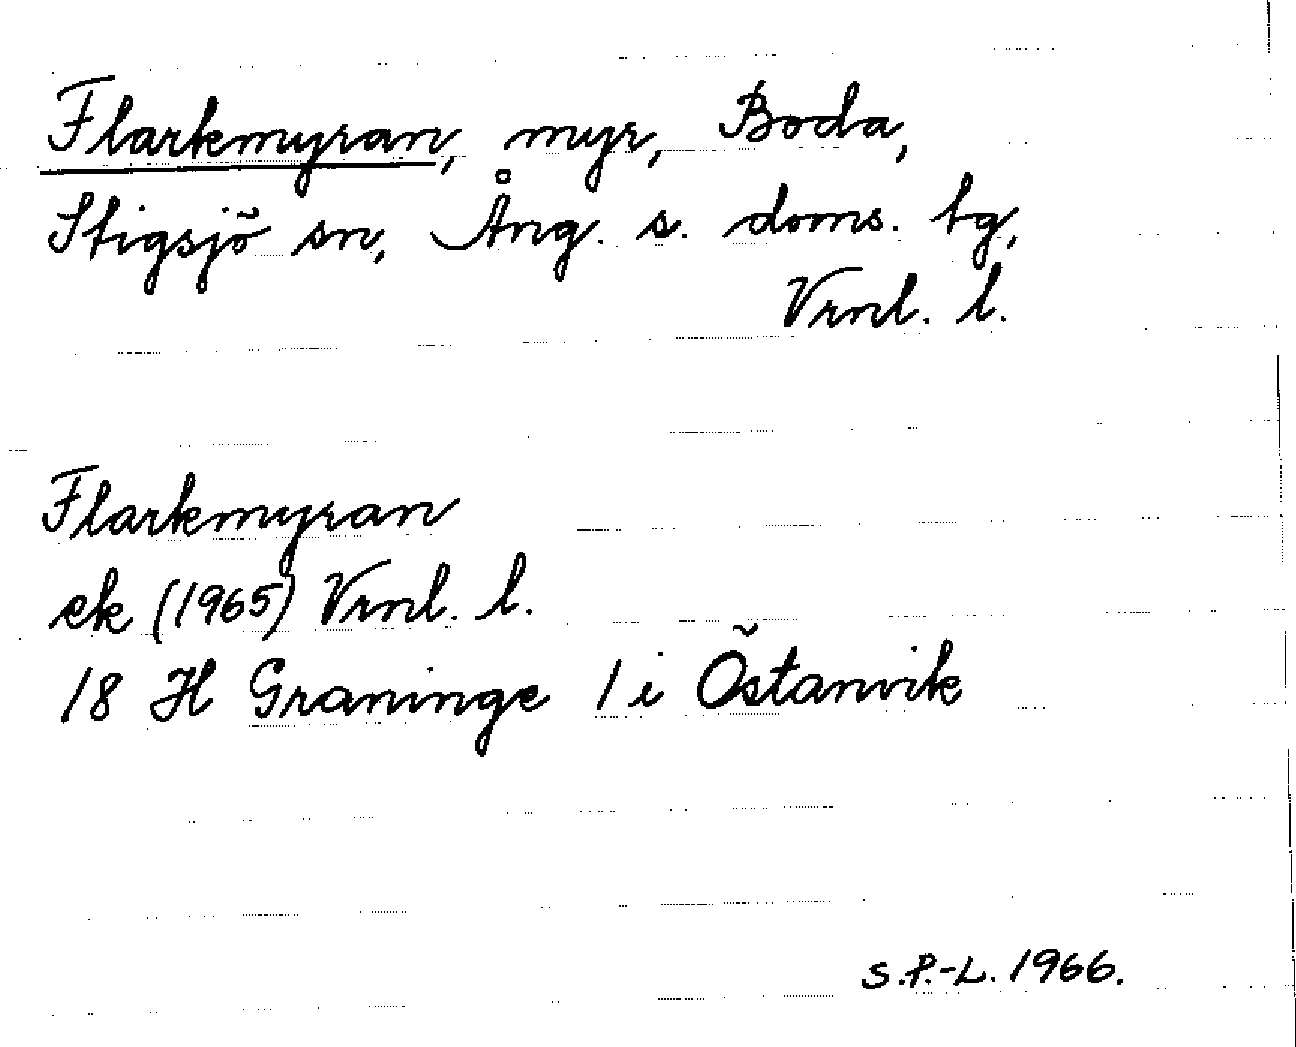 Flarkmyran, myr, Boda,
Stigsjö sn, Ång. s. doms. tg,
Vrnl. l.
Flarkmyran
ek (1965) Vrnl. l.
18 H Graninge 1 i Östanvik
S.P.-L. 1966.